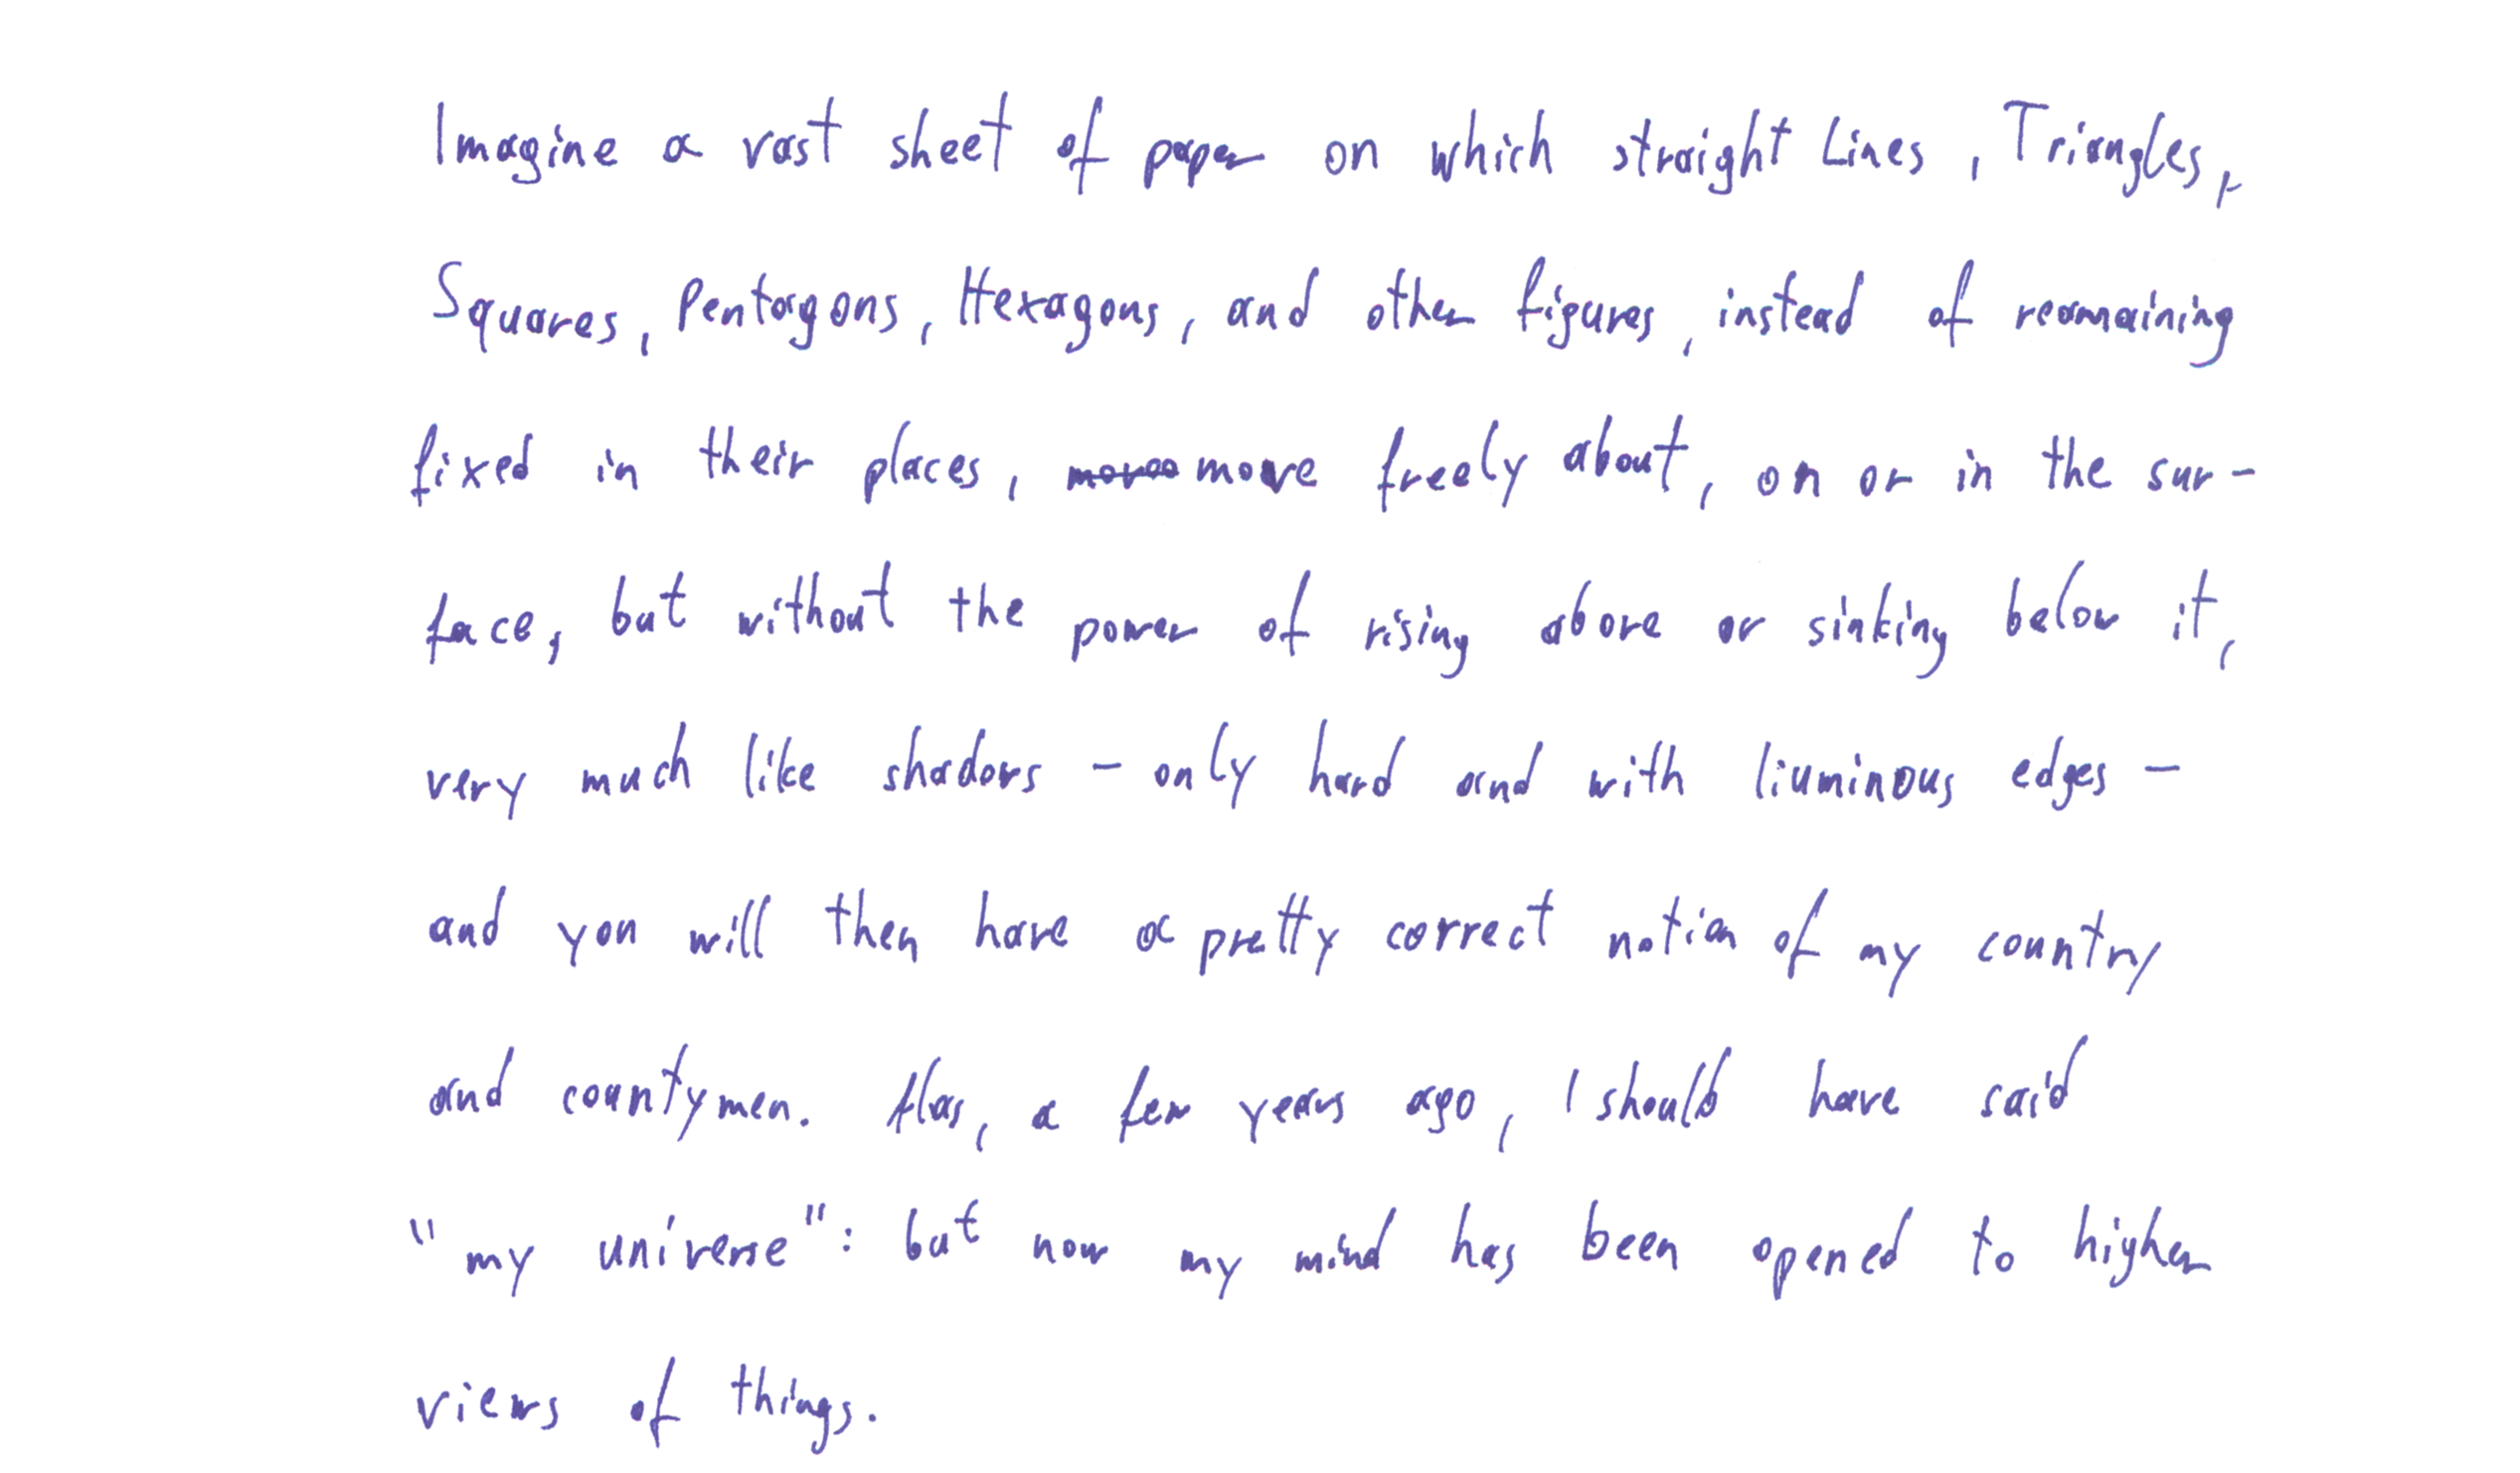 Imagine a vast sheet of paper on which straight Lines, Triangles,
Squares, Pentagons, Hexagons, and other figures, instead of reamaining
fixed in their places, move freely about, on or in the sur-
face, but without the power of rising above or sinking below it,
very much like shadows – only hard and with liuminous edges –
and you will then have a pretty correct notion of my country
and countymen. Alas, a few years ago, I should have said
"my universe": but now my mind has been opened to higher
views of things.